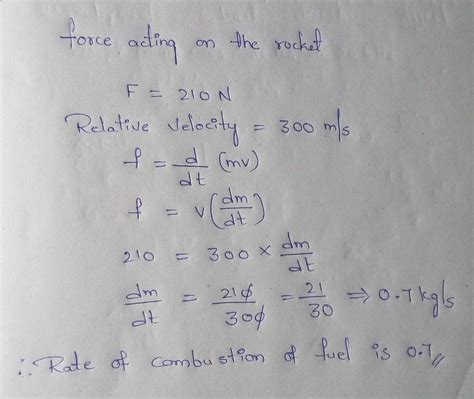 force acting on the rocket
F = 210 N
Relative Velocity = 300 m/s
f = d/dt (mv)
f = v(dm/dt)
210 = 300 × dm/dt
dm/dt = 210/300 = 21/30 ⇒ 0.7 kg/s
∴ Rate of combustion of fuel is 0.7//